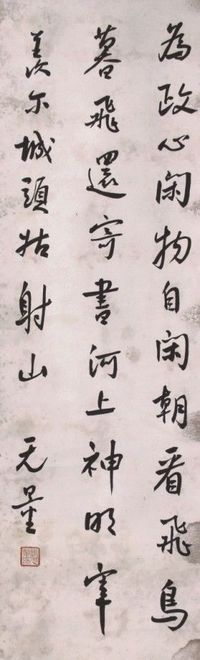 為政心閑物自閑朝看飛鳥
暮飛還寄書河上神明宰
羨尔城頭姑射山
无量